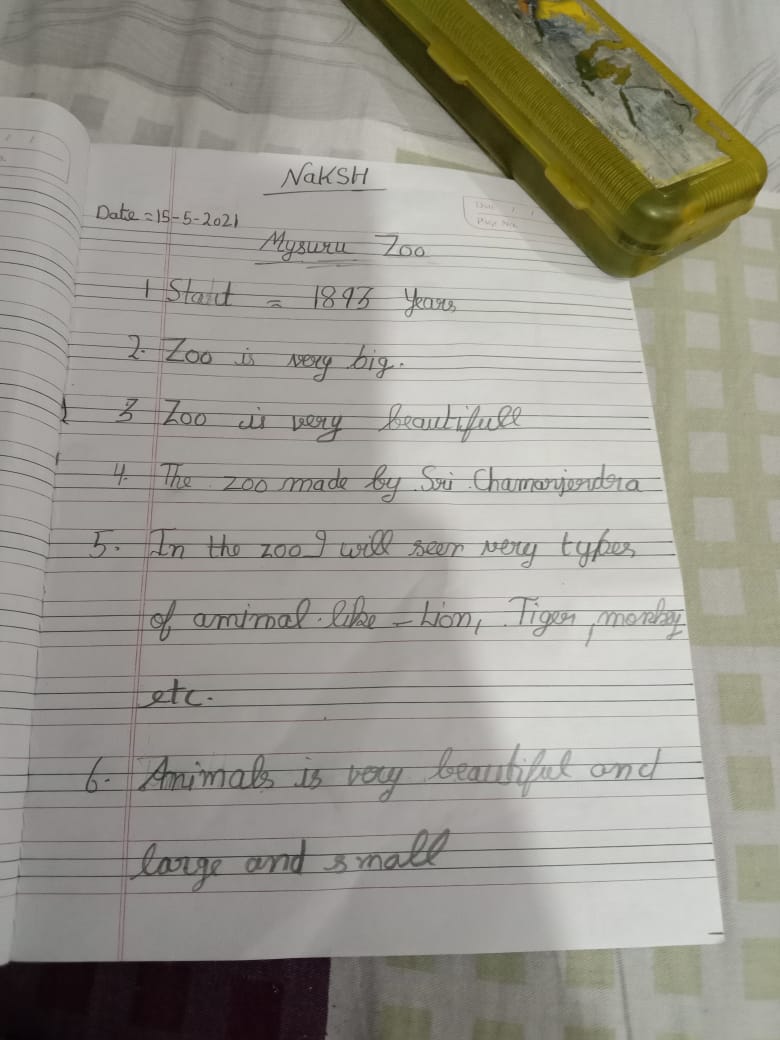 NaKSH
Date = 15-5-2021
Mysuru Zoo
1 Start = 1893 Years
2. Zoo is very big.
3 Zoo is very beautifull
4. The zoo made by Sri Chamarjendra
5. In the zoo I will seen very types
of amimal. like - Lion, Tiger, monkey
etc.
6. Animals is very beautiful and
large and small